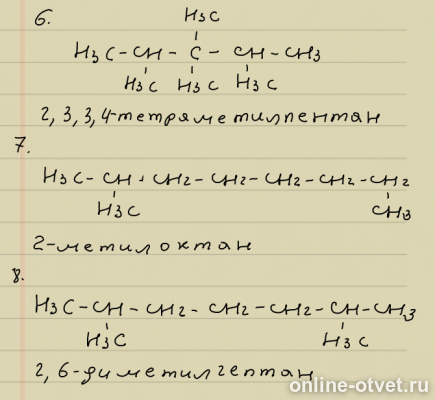 6.
H3C
H3C-CH-C-CH-CH3
H3C H3C H3C
2,3,3,4-тетраметилпентан
7.
H3C-CH-CH2-CH2-CH2-CH2-CH2
H3C CH3
2-метилоктан
8.
H3C-CH-CH2-CH2-CH2-CH-CH3
H3C H3C
2,6-диметилгептан
online-otvet.ru